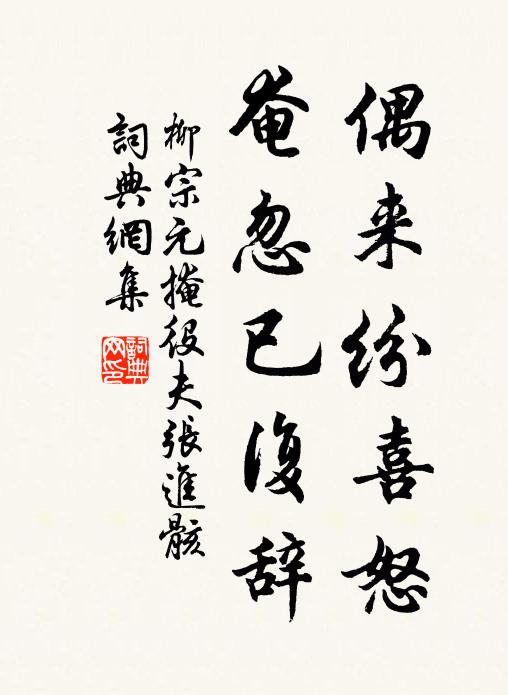 偶来纷喜怒
奄忽已復辞
柳宗元掩役夫張進骸
詞典網集
詞典網印